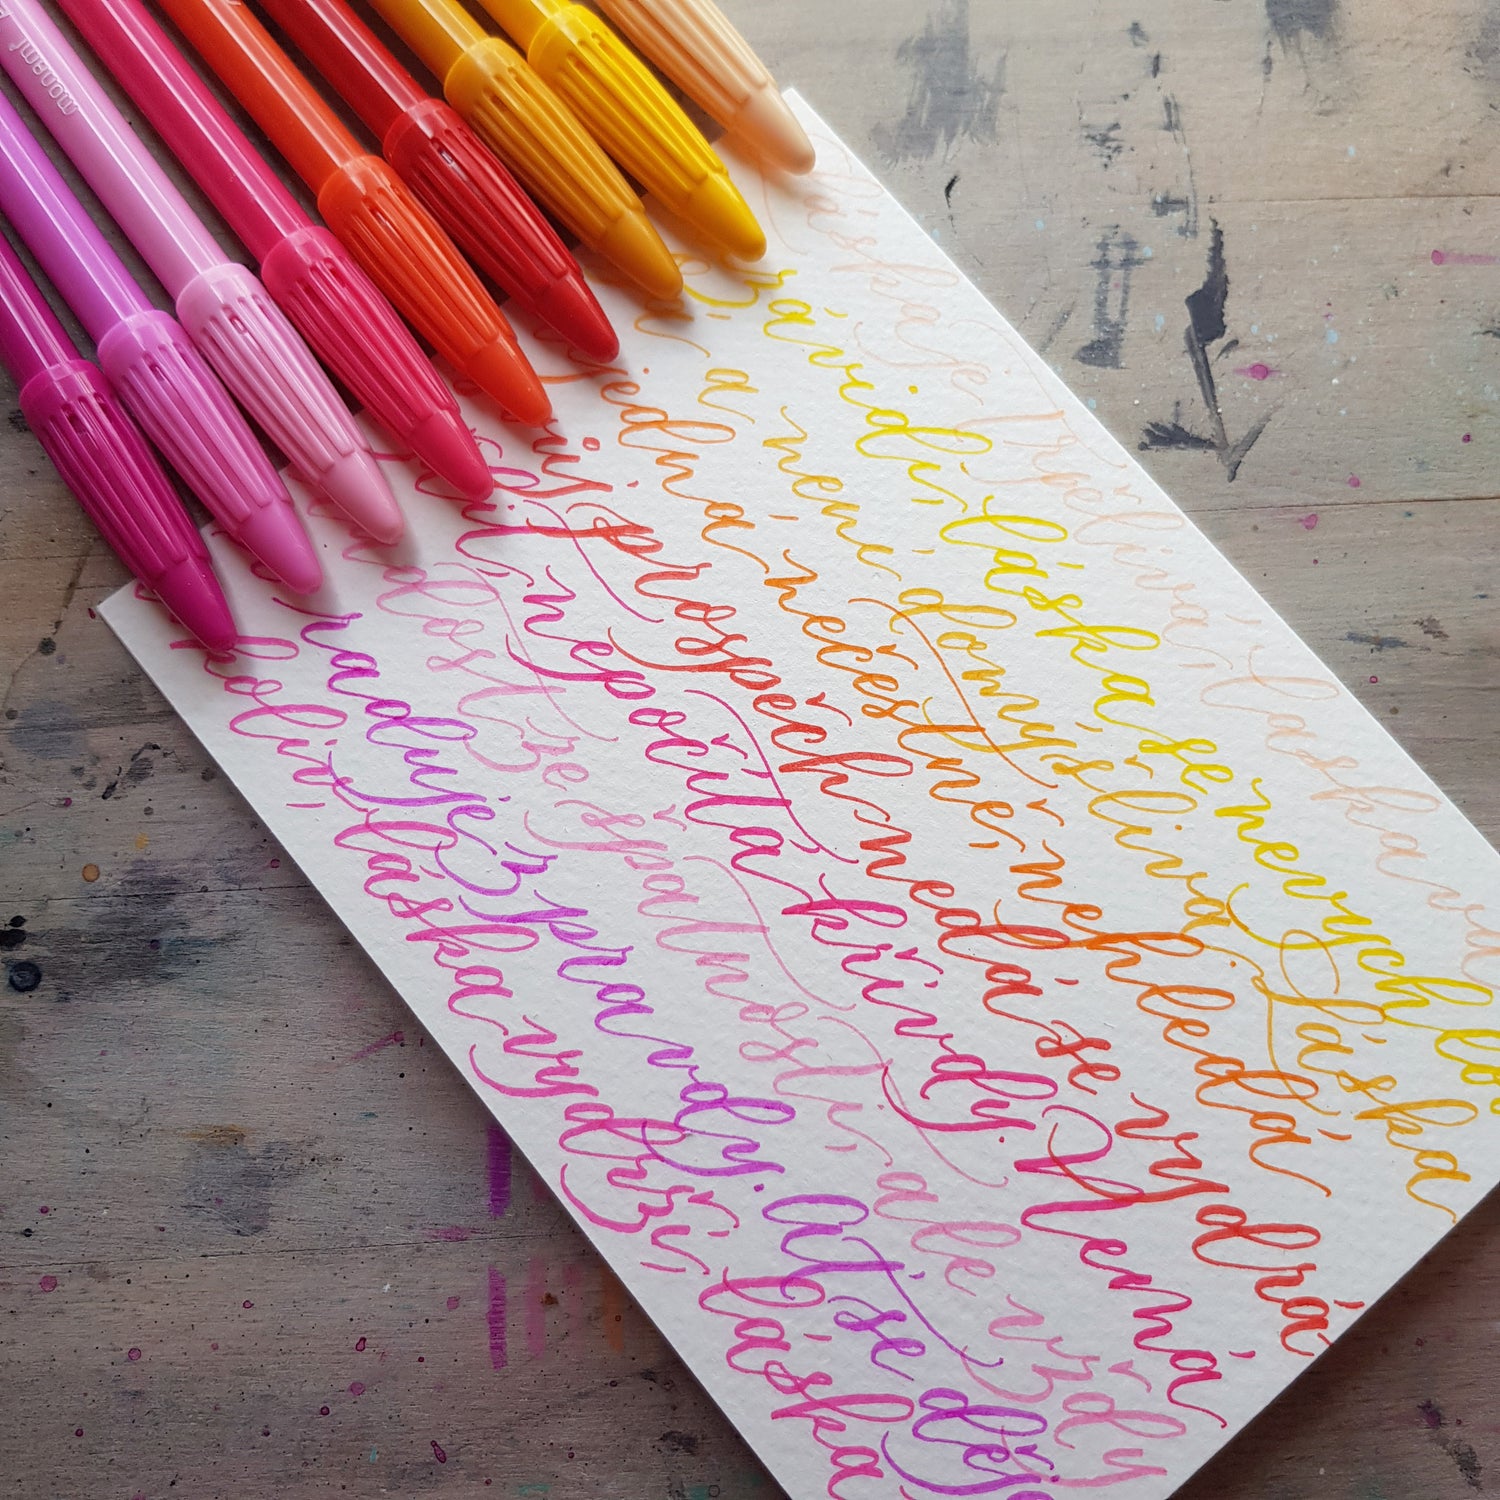 monami
láska je trpělivá, laska vá
závidí, láska se nevychlo
a není domýšlivá. Láska
jedná nečestně, nehledá
ůj prospěch nedá se vydrá
dit, nepočítá křivdy. Nemá
adost ze špatnosti, ale vždy
raduje z pravdy. Ať se děje
koliv, láska vydrží, láska